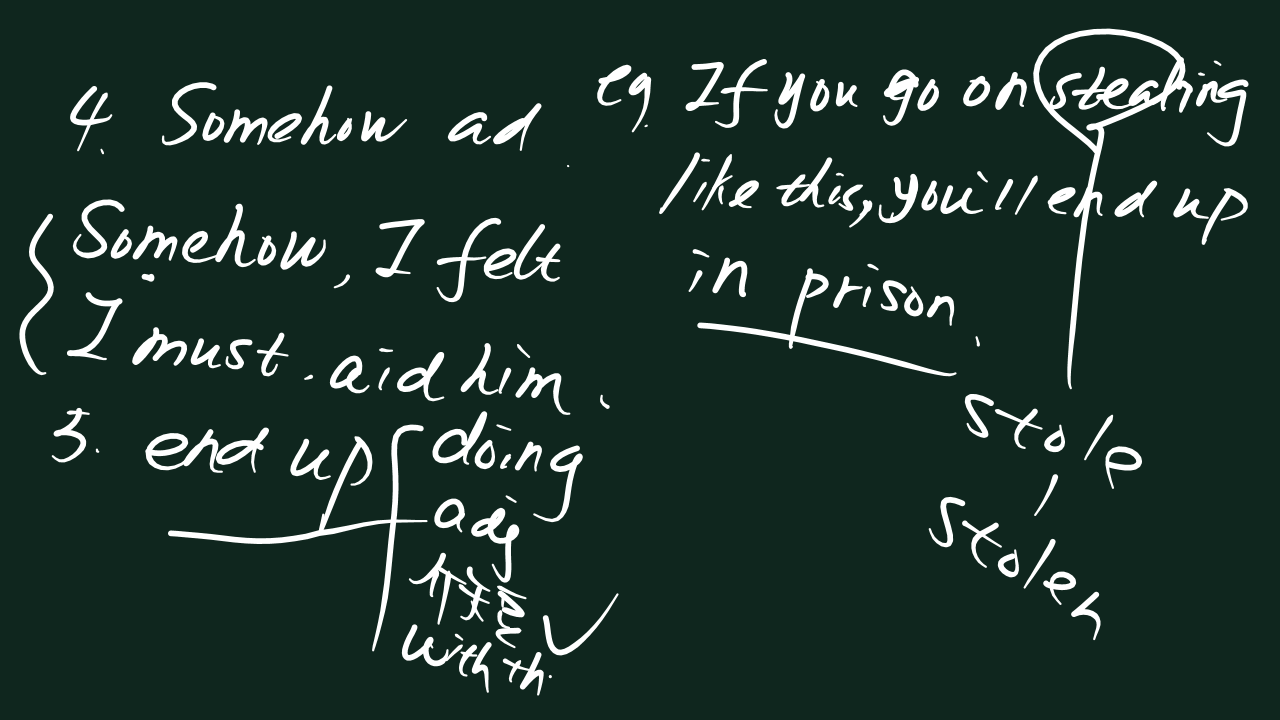 4. Somehow ad.
Somehow, I felt
I must aid him.
5. end up
doing
adj
介短
with th.
eg. If you go on stealing
like this, you'll end up
in prison.
stole
stolen